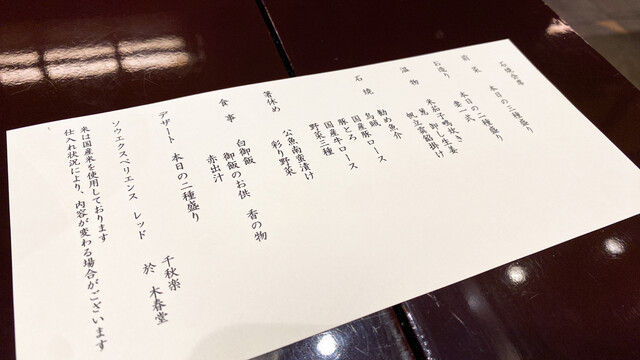 石焼会席
前菜　本日の三種盛り
お造り　本日の二種盛り
妻一式
温物　米茄子鴫炊き
葱　卸し生姜
帆立餡掛け
石焼　勧め魚介
烏賊
国産豚ロース
豚とろ
国産牛ロース
野菜三種
箸休め　公魚南蛮漬け
彩り野菜
食事　白御飯
御飯のお供　香の物
赤出汁
デザート　本日の二種盛り
ソウエクスペリエンス　レッド
千秋楽
於　木春堂
米は国産米を使用しております
仕入れ状況により、内容が変わる場合がございます